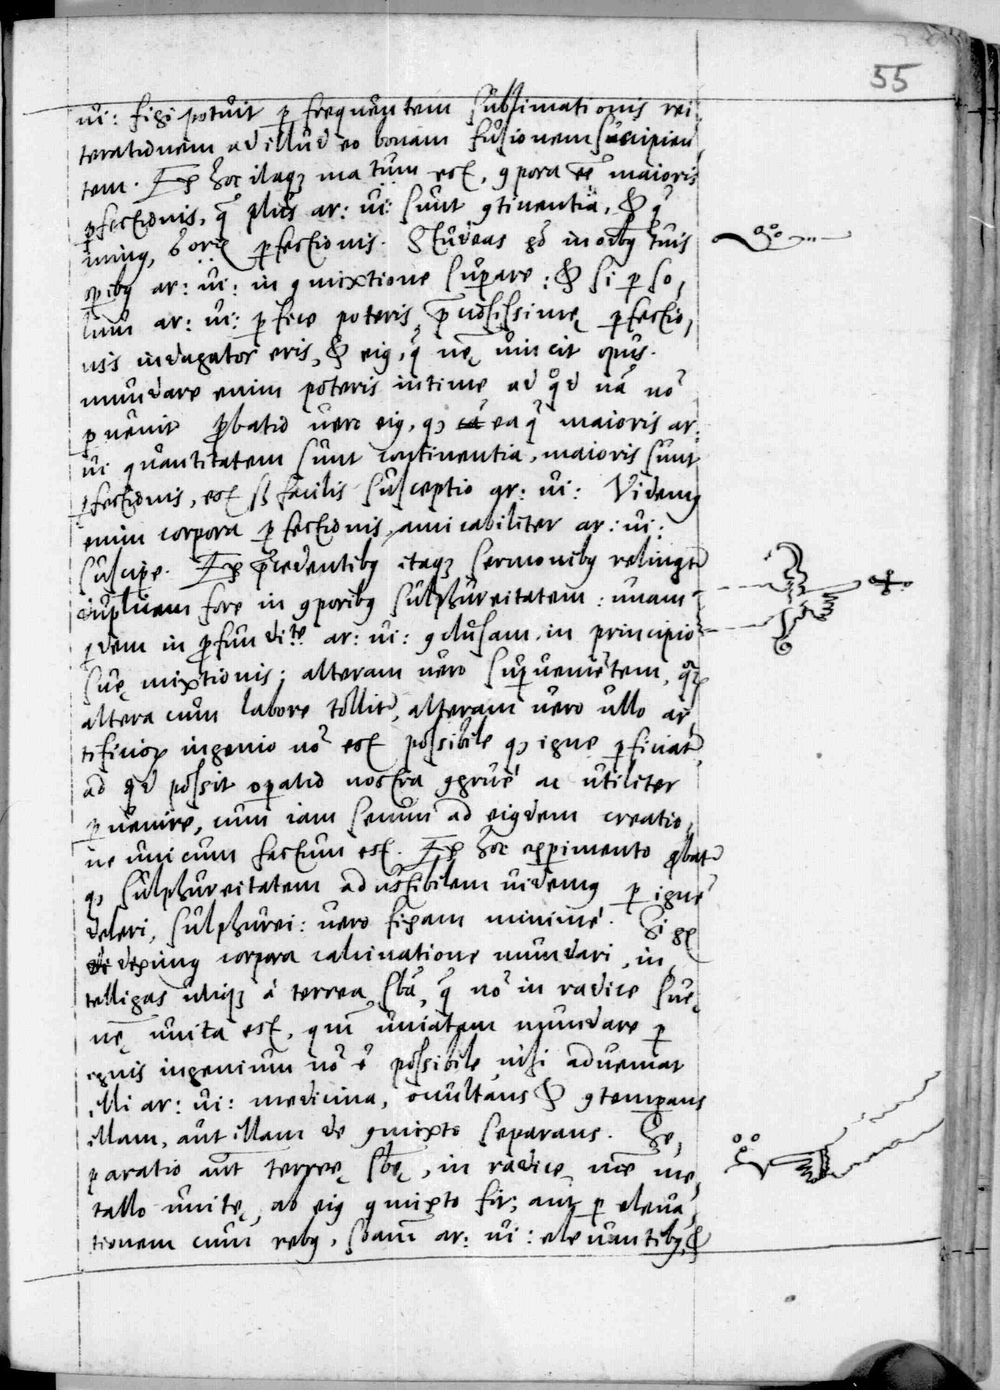 55
ui: figi potuit p frequentem sublimationis rei
terationem ad illud eo bonam fusionem suscipien,
tem. Ex hoc itaqꝫ ma tum est, ꝯpora eē maioris
pfectionis, q̃ plus ar: ui: sunt ꝯtinentia, & q̃
minꝰ, pfectionis. Studeas in oībꝰ tuis
opibꝰ ar: ui: in ꝯmixtione supare: & si p so,
lum ar: ui: pfice poteris, p̃ciosissimę pfectio,
nis indagator eris, & eiꝰ, q̃ uincit opus.
mundare enim poteris intime ad qd nã nō
puenit pbatio uero eiꝰ, qꝫ ea q̃ maioris ar:
ui quantitatem sunt continentia, maioris sunt
pfectionis, est facilis susceptio ar: ui: Videmꝰ
enim corpora pfectionis, amicabiliter ar: ui:
suscipe. Ex p̃cedentibꝰ itaqꝫ sermonibꝰ relinqt̃
duplicem fore in ꝯporibꝰ sulphureitatem: unam
qdem in pfundite ar: ui: ꝯclusam, in principio
suę mixtionis; alteram uero supuenietem, qꝝ
altera cum labore tollit̃, alteram uero ullo ar,
tificioꝝ ingenio nō est possibile qꝫ igne pficiat̃,
ad qd possit opatio nostra ꝯgrue ac utiliter
puenire, cum iam secum ad eiꝰdem creatio,
ne unicum factum est. Ex hoc expimento pbat̃
qꝫ sulphureitatem adustibilem uidemꝰ p ignẽ
deleri, sulphurei: uero fixam minime. Si
diximꝰ corpora calcinatione mundari, in,
telligas utiqꝫ à terrea sbã, q̃ nō in radice suę
unita est, qm unitam mundare p
ignis ingenium nō ẽ possibile, nisi adueniat
illi ar: ui: medicina, occultans & ꝯtemperans
illam, aut illam de ꝯmixto separans. Se,
paratio aut terreę sbę, in radice me,
tallo unitę, ab eiꝰ ꝯmixto fit; aut p eleua,
tionem cum rebꝰ, sbam ar: ui: eleuantibꝰ, &